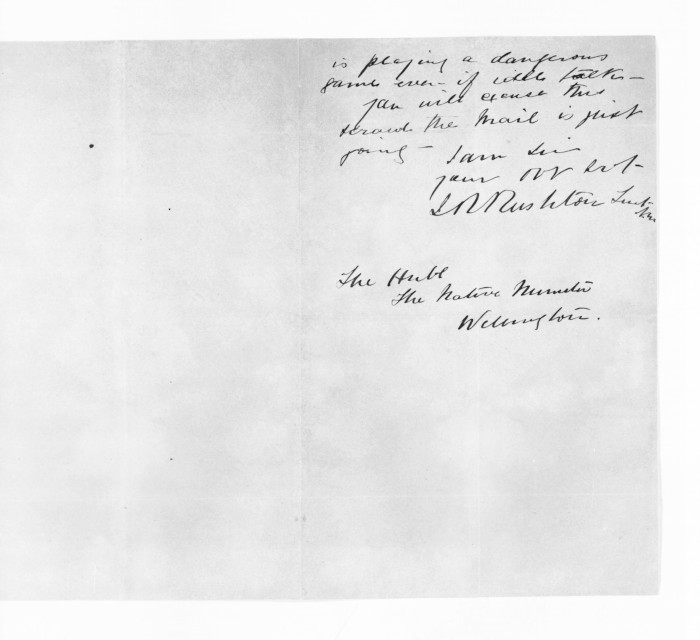 is playing a dangerous
game even if idle talk -
you will excuse this
scrawl the Mail is just
going -
I am Sir
your obt Svt
J R Rushton Lieut
The Honble
The Native Minister
Wellington.